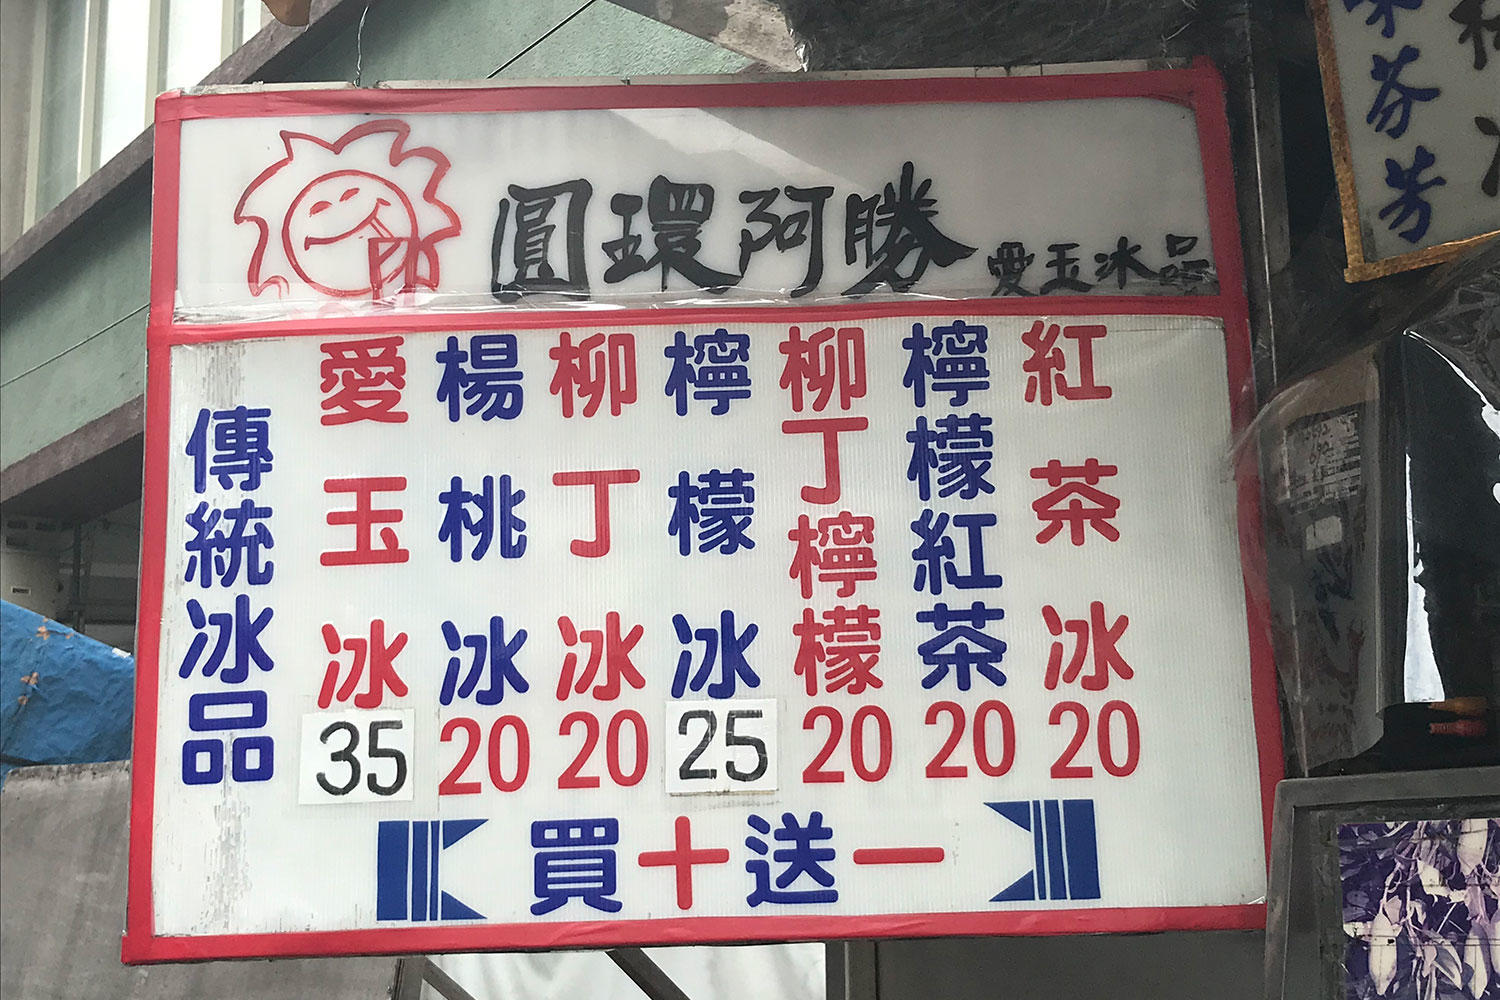 圓環阿勝 愛玉冰品
傳統冰品
愛玉冰 35
楊桃冰 20
柳丁冰 20
檸檬冰 25
柳丁檸檬 20
檸檬紅茶 20
紅茶冰 20
買十送一
芬芳